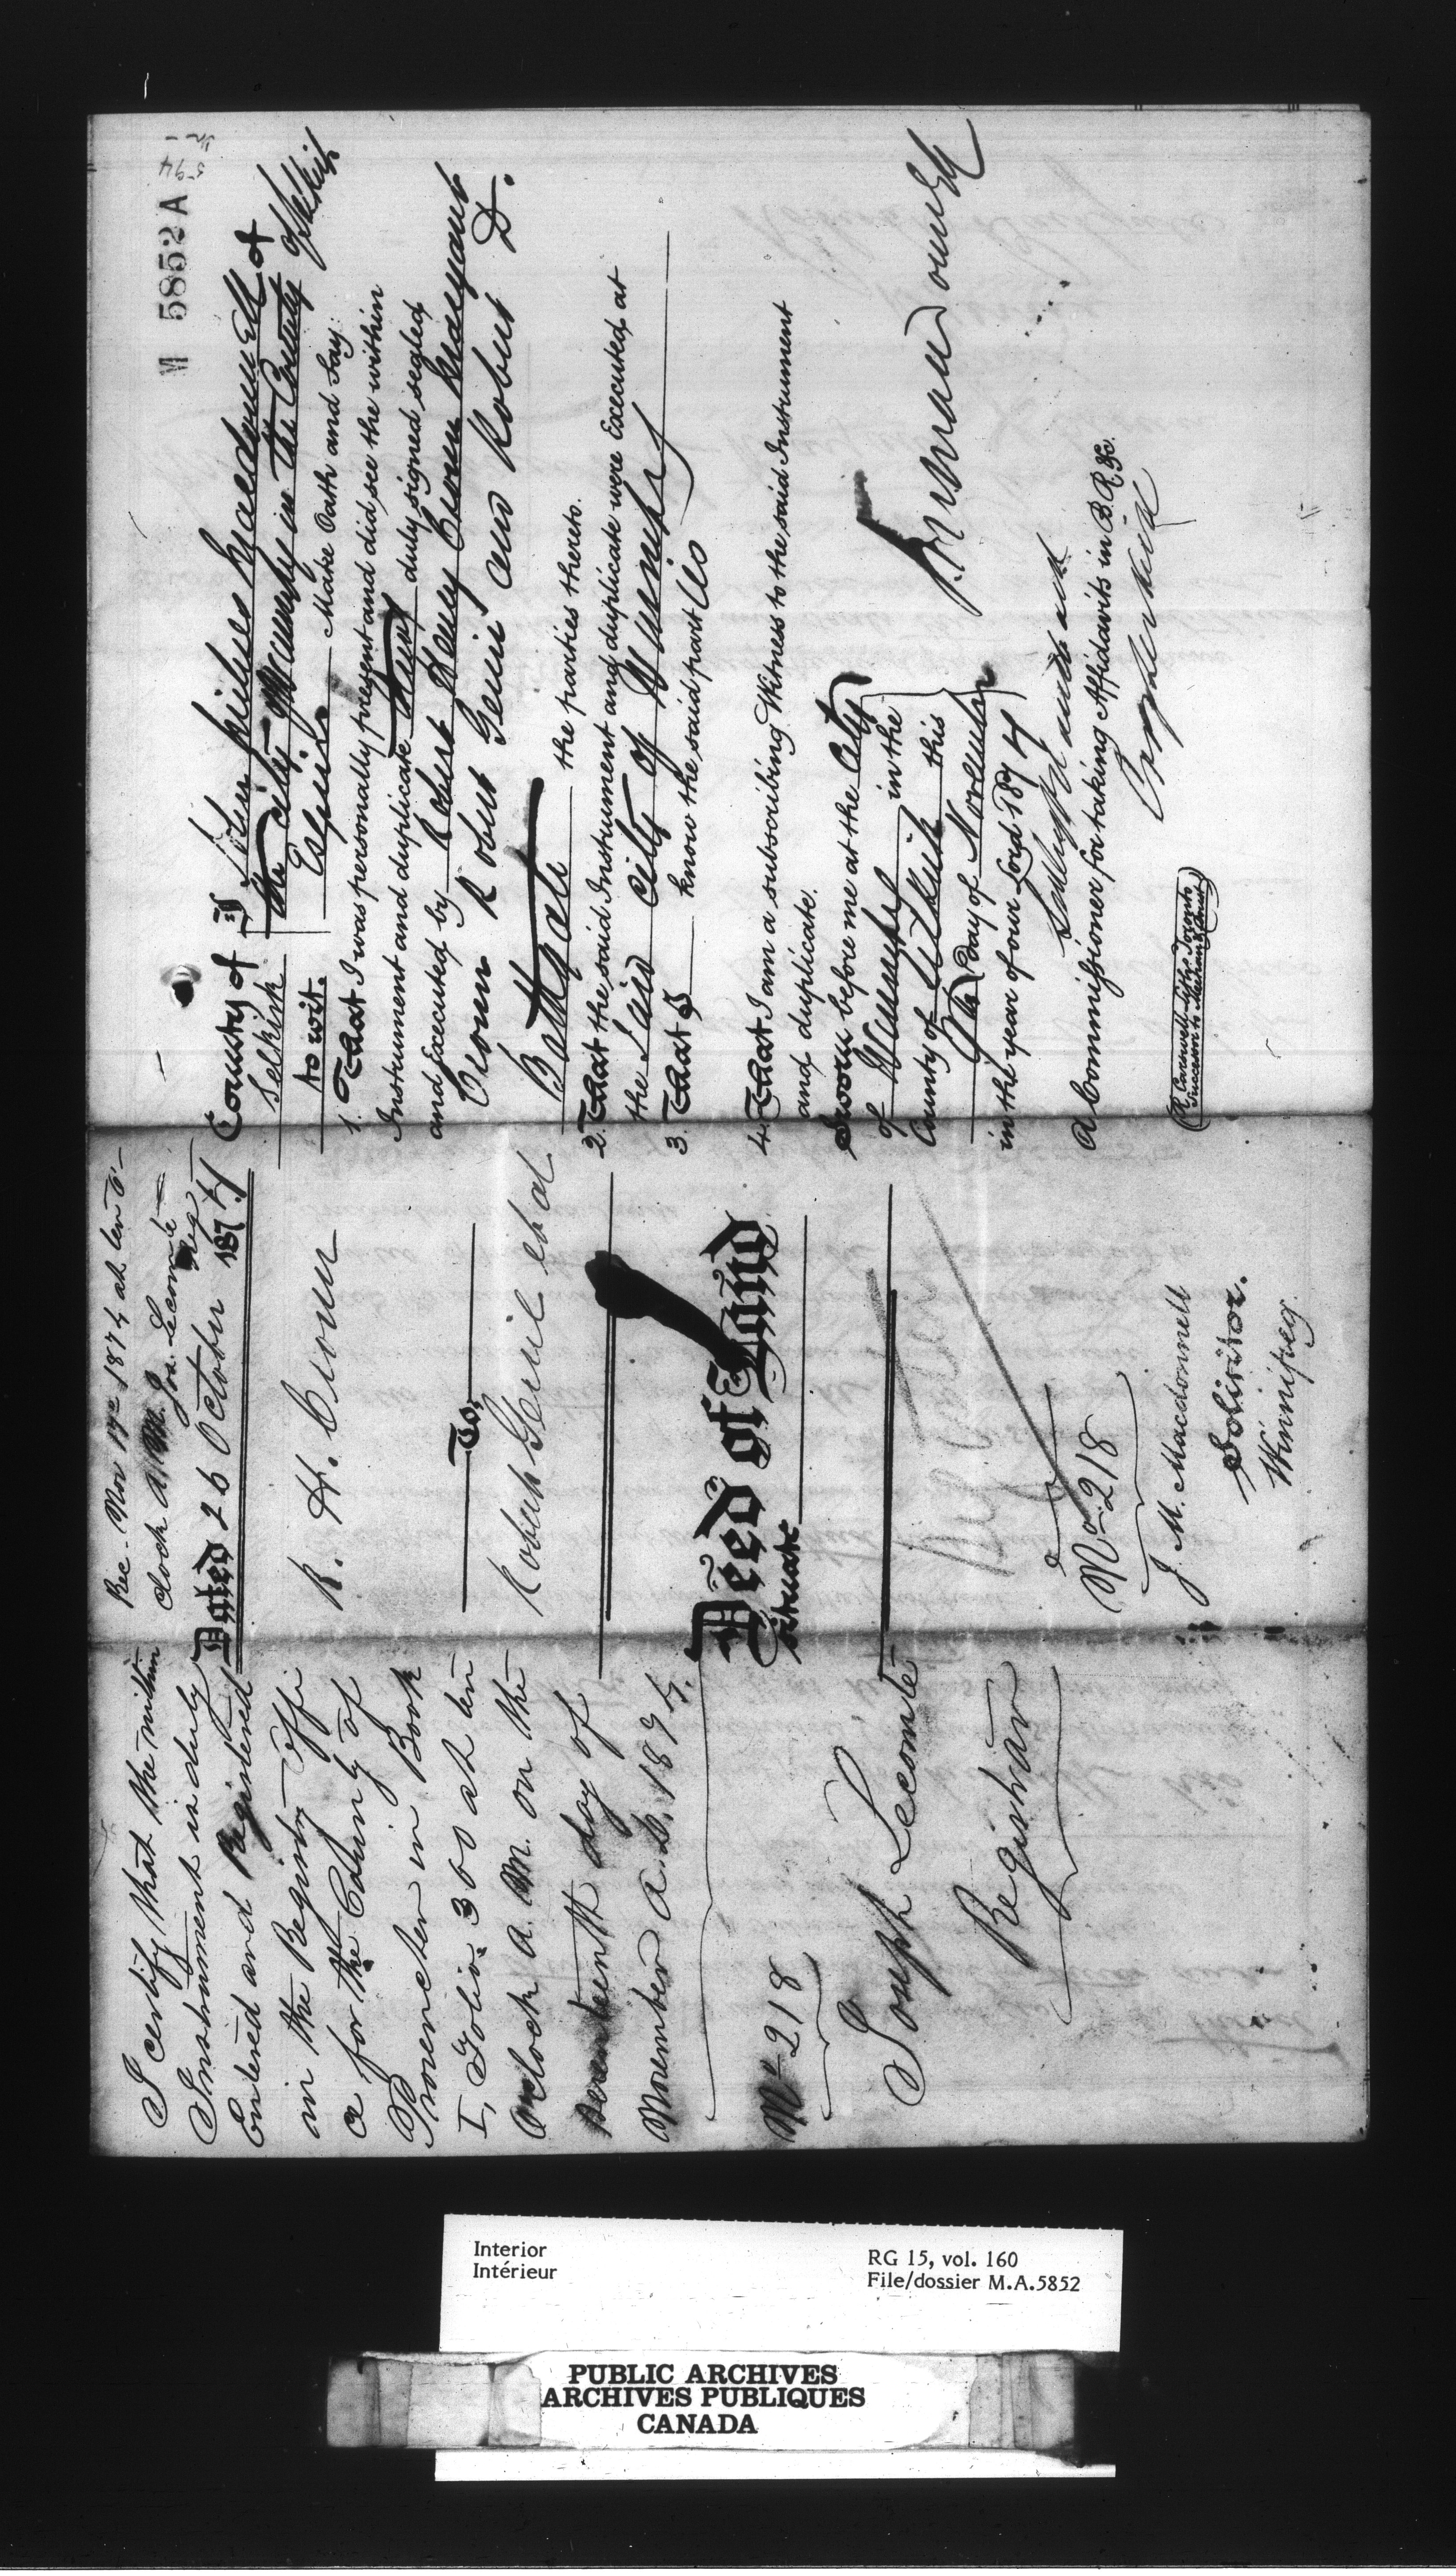 I certify that the within
Instrument is duly
Entered and Registered
in the Registry Offi
ce for the County of
Provencher in Book
I, Folio 300 at ten
O'clock A.M. on the
Seventeenth day of
November A.D. 1874.
No 218
Joseph Lecomte
Registrar
Rec. Nov 17th 1874 at ten O'
clock A.M. Jos. Lecomte
Reg
Dated 26 October 1874
R. H. Crown
To
Robert Genil et al
Deed of Land
Situate
No 218
J. M. Macdonnell
Solicitor.
Winnipeg.
M 5852 A
594
County of
Selkirk
to wit.
I John Miles Macdonnell of
the City of Winnipeg in the County of Selkirk
Esquire Make Oath and Say:
1. That I was personally present and did see the within
Instrument and duplicate duly signed sealed
and Executed by Robert Henry Crown
Crown Robert Genil and Robert D.
Bathgate the parties thereto.
2. That the said Instrument and duplicate were Executed at
the Said City of Winnipeg
3. That I know the said parties
4. That I am a subscribing Witness to the said Instrument
and duplicate.
Sworn before me at the City
of Winnipeg in the
County of Selkirk this
9th Day of November
in the year of our Lord 1874
J. M Macdonnell
A Commissioner for taking Affidavits in B.R. &c.
R. Carswell, City, Toronto,
Interior
Intérieur
RG 15, vol. 160
File/dossier M.A.5852
PUBLIC ARCHIVES
ARCHIVES PUBLIQUES
CANADA